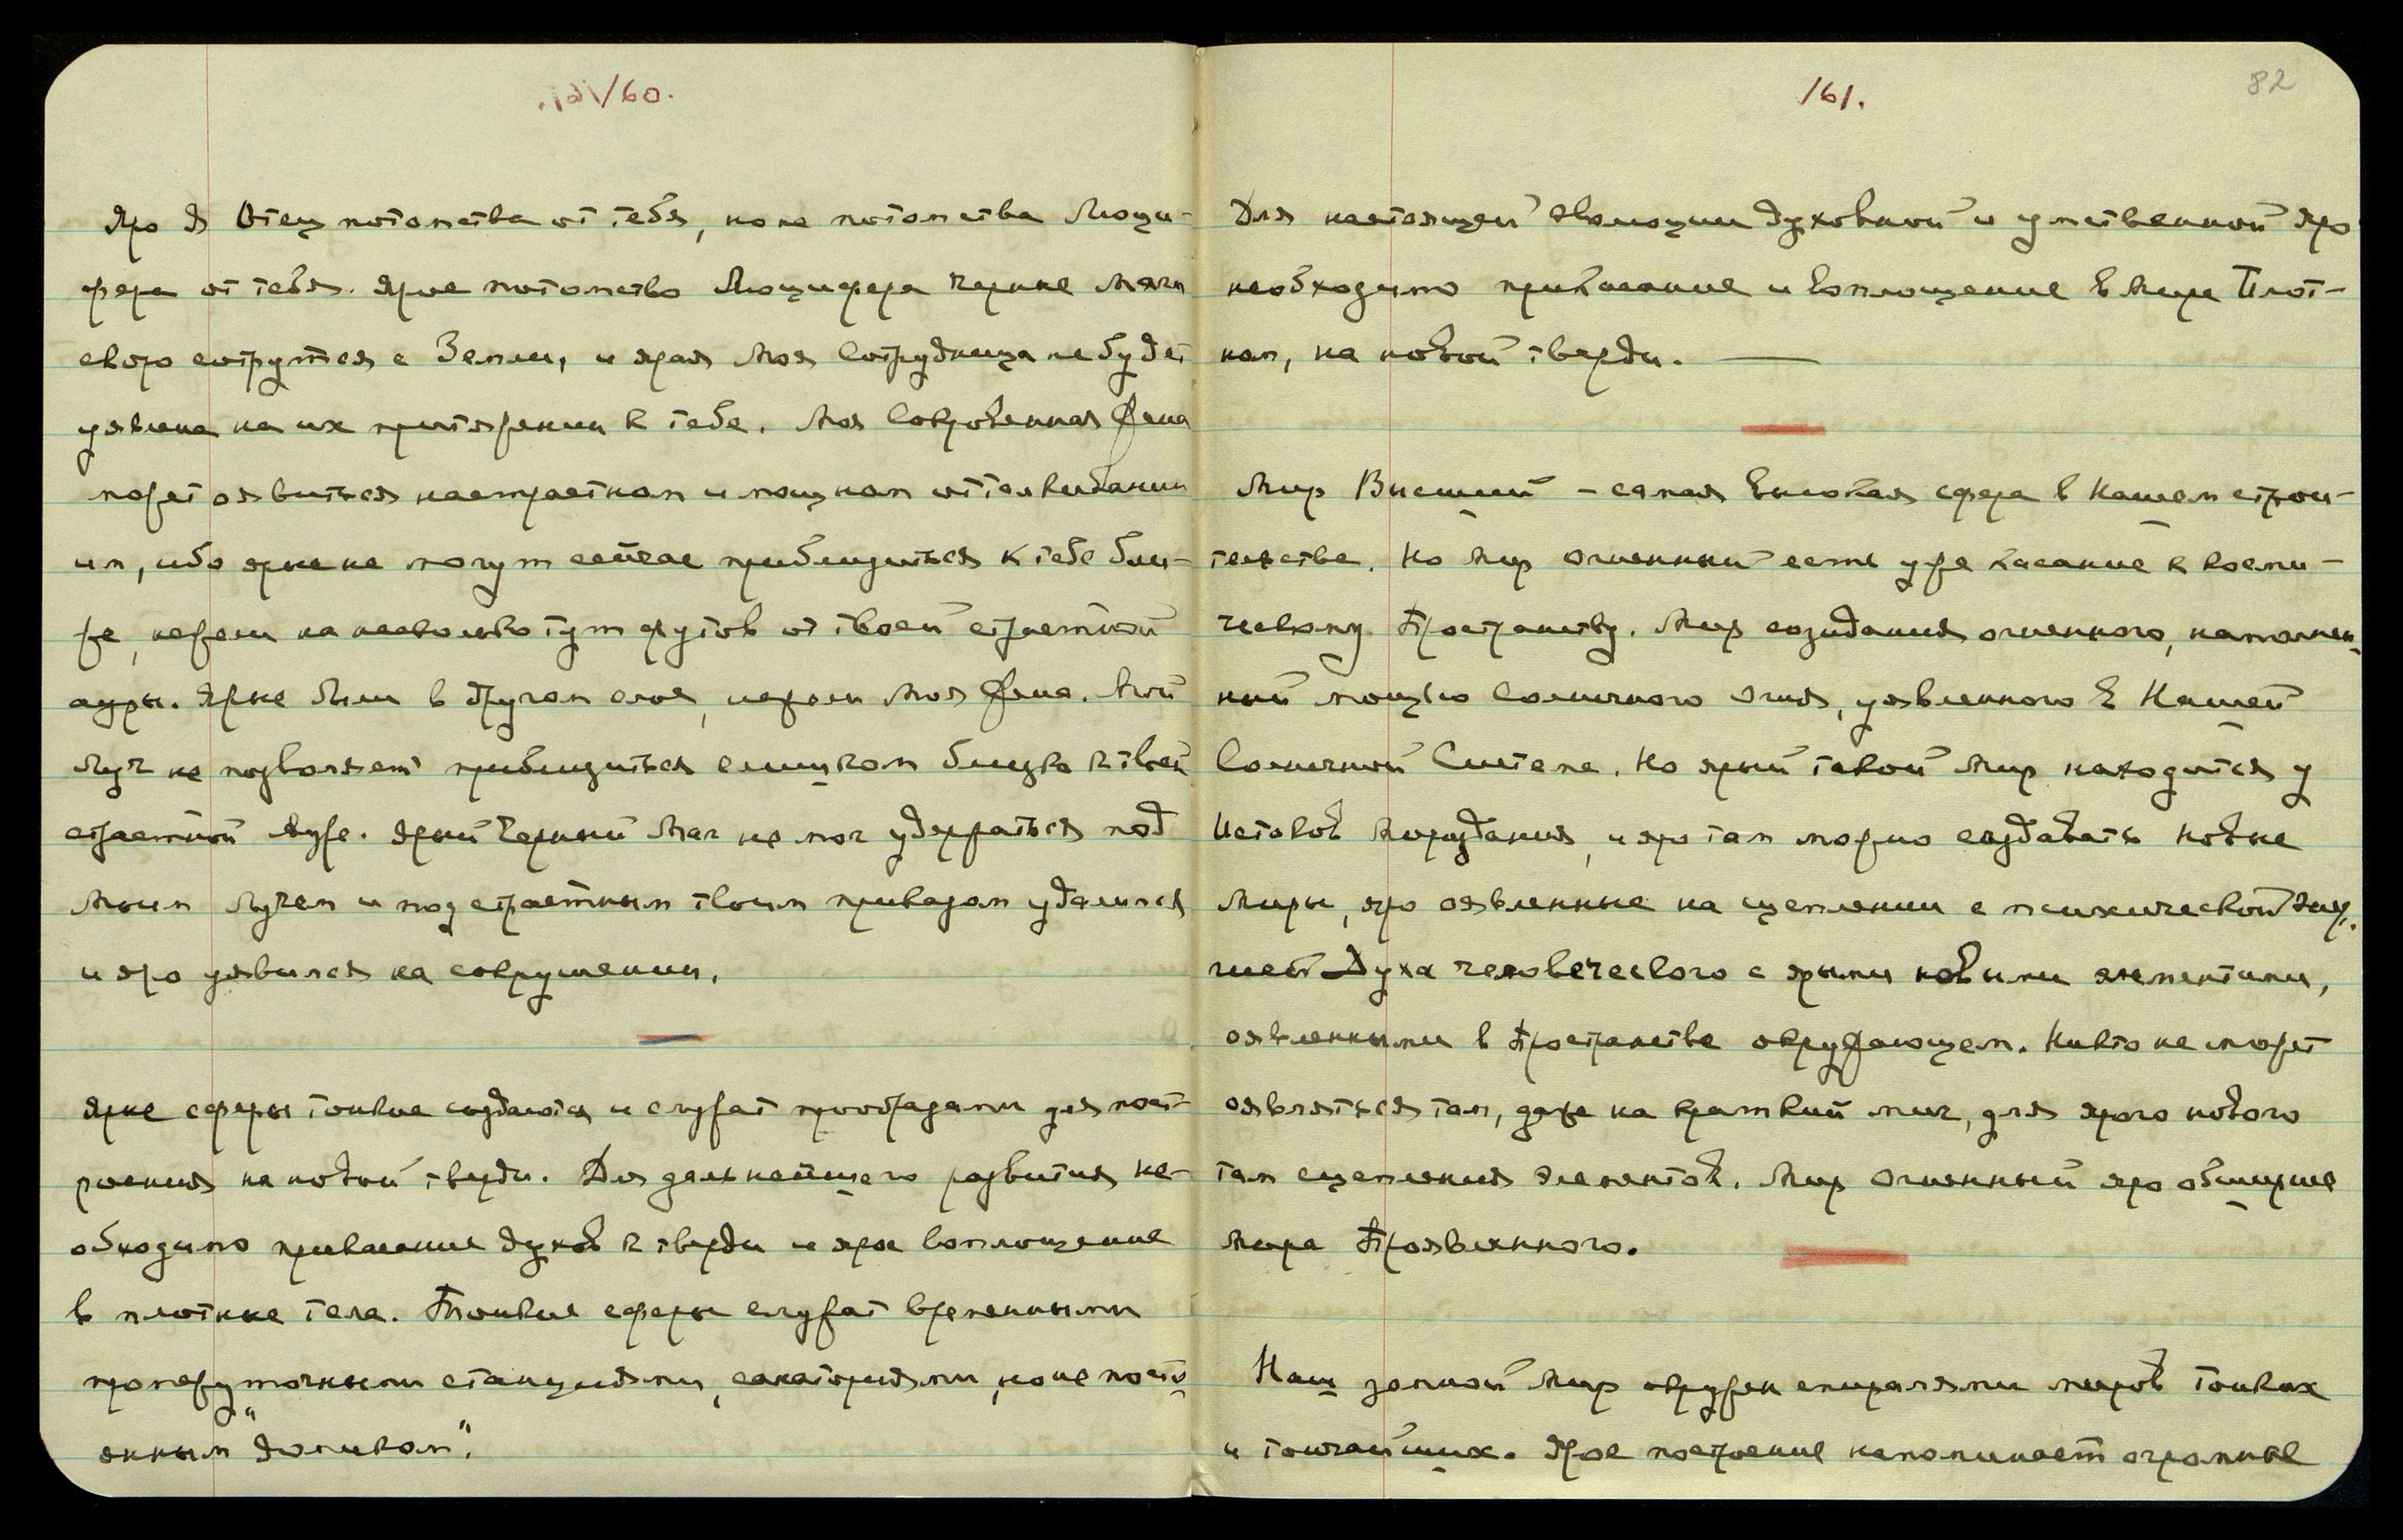 160.
Яро Я Отец потомства от тебя, но не потомства Люци-
фера от тебя. Ярое потомство Люцифера черные маги
скоро сотрутся с Земли, и ярая Моя Сотрудница не будет
уявлена на их притяжении к тебе. Моя Сокровенная Жена
может оявиться на страстном и мощном отталкивании
им, ибо ярые не могут сейчас приблизиться к тебе бли-
же, нежели на несколько тут футов от твоей страстной
ауры. Ярые были в другом слое, нежели Моя Жена. Мой
Луч не позволяет приблизиться слишком близко к твоей
страстной Ауре. Ярый Черный Маг не мог удержаться под
Моим Лучем и под страстным твоим приказом удалился
и яро уявился на сокрушении.
Ярые сферы тонкие создаются и служат прообразами для пост-
роения на новой тверди. Для дальнейшего развития не-
обходимо прикасание духов к тверди и ярое воплощение
в плотные тела. Тонкие сферы служат временными
промежуточными станциями, санаториями, но не посто-
янным "домиком".
161.
82
Для настоящей эволюции духовной и умственной яро
необходимо прикасание и воплощение в Мире Плот-
ном, на новой тверди. —
Мир Высший – самая высокая сфера в Нашем строи-
тельстве. Но Мир Огненный есть уже касание к косми-
ческому Пространству. Мир созидания огненного, наполнен-
ный мощью Солнечного Огня, уявленного в Нашей
Солнечной Системе. Но ярый такой Мир находится у
Истоков Мироздания, и яро там можно создавать новые
Миры, яро оявленные на сцеплении с психической энер-
гией Духа человеческого с ярыми новыми элементами,
оявленными в Пространстве окружающем. Никто не может
оявляться там, даже на краткий миг, для ярого нового
там сцепления элементов. Мир Огненный яро обширнее
Мира Проявленного.
Наш земной Мир окружен спиралями миров тонких
и тончайших. Ярое построение напоминает огромные